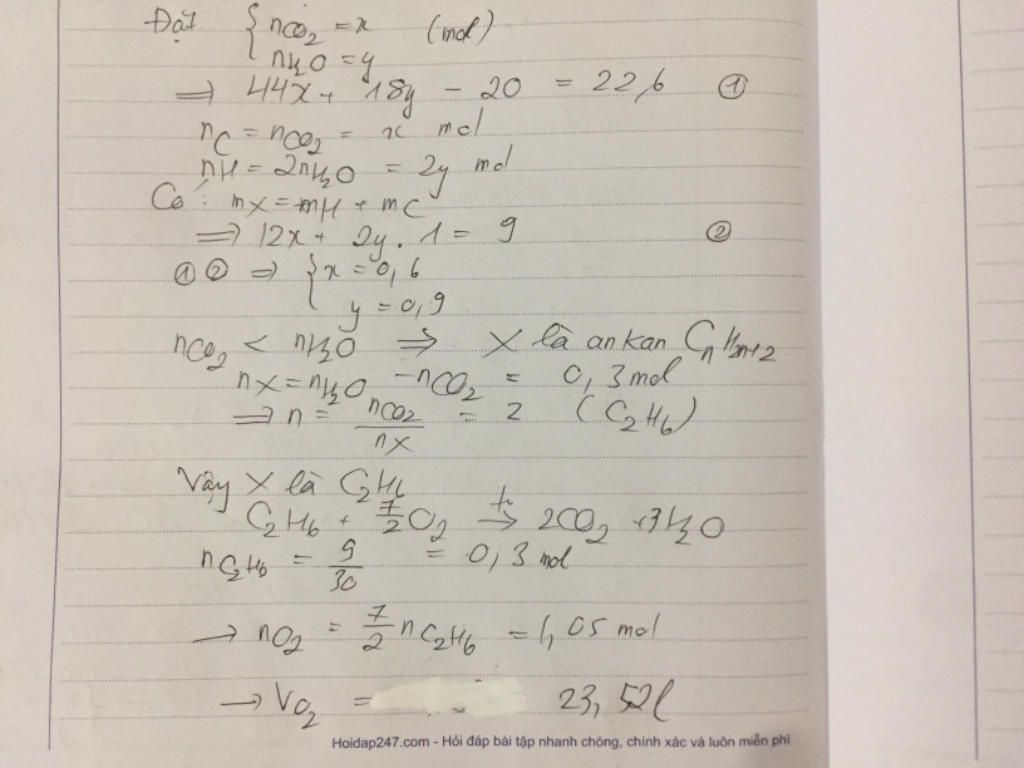 Đặt { nCO2 = x (mol)
nH2O = y
=> 44x + 18y - 20 = 22,6 ①
nC = nCO2 = x mol
nH = 2nH2O = 2y mol
Có: mX = mH + mC
=> 12x + 2y.1 = 9 ②
① ② => { x = 0,6
y = 0,9
nCO2 < nH2O => X là ankan CnH2n+2
nX = nH2O - nCO2 = 0,3 mol
=> n = nCO2/nX = 2 (C2H6)
Vậy X là C2H6
C2H6 + 7/2O2 -> 2CO2 + 3H2O
nC2H6 = 9/30 = 0,3 mol
-> nO2 = 7/2 nC2H6 = 1,05 mol
-> VO2 = 23,52l
Hoidap247.com - Hỏi đáp bài tập nhanh chóng, chính xác và luôn miễn phí